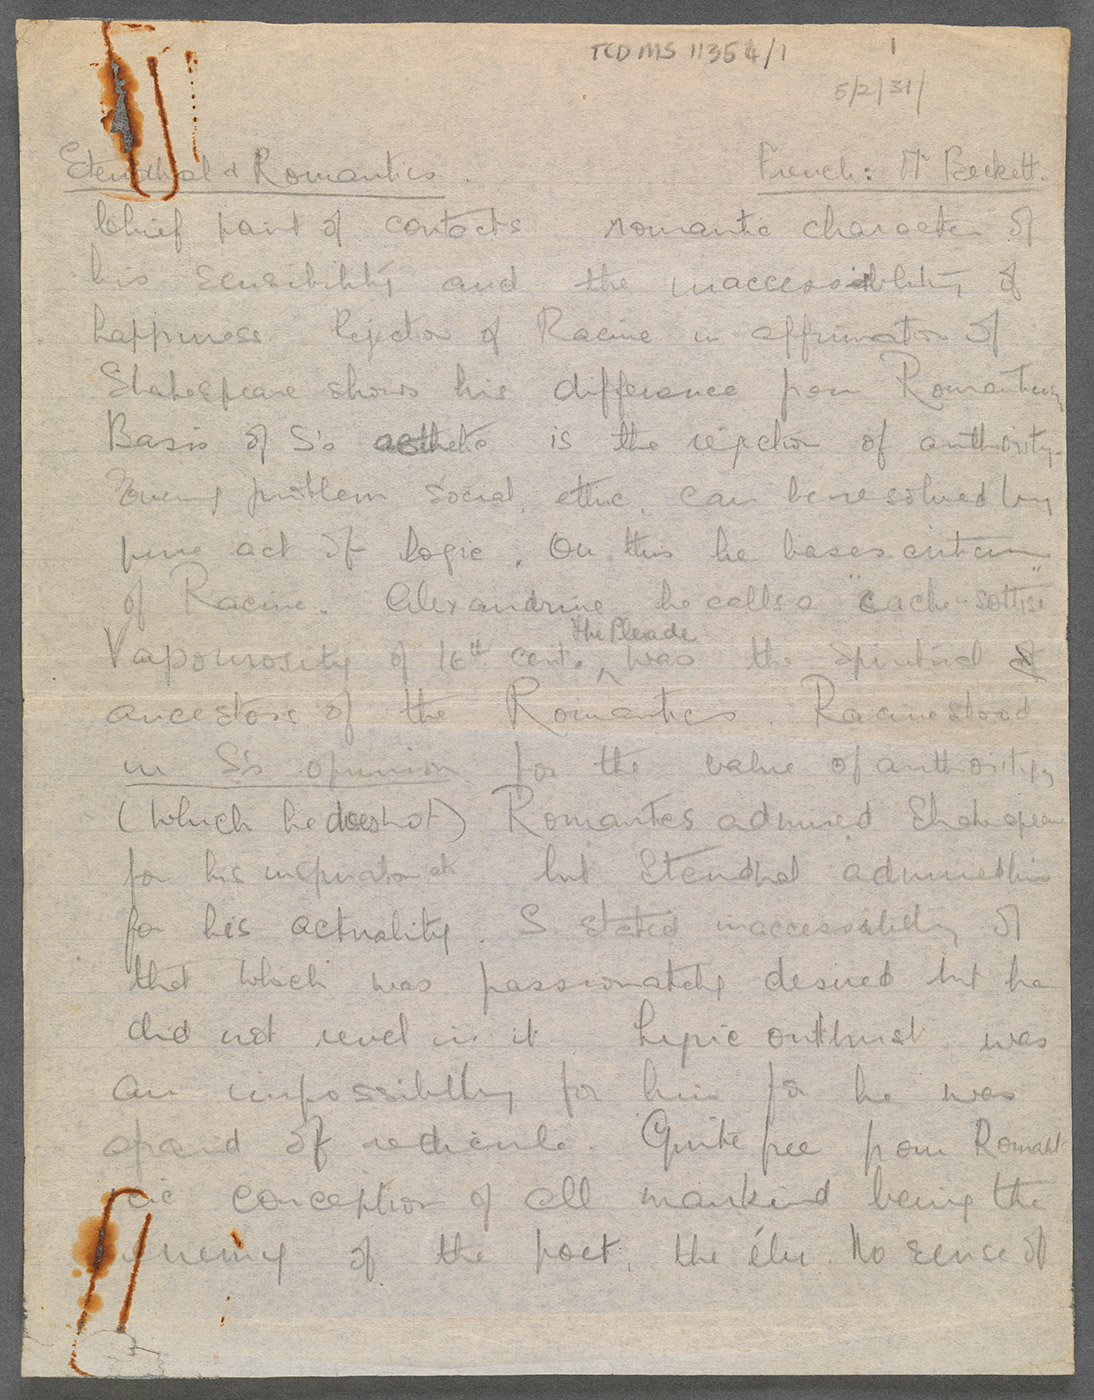 TCD MS 11354/1 1
5/2/31/
Stendhal & Romantics. French: Mr Beckett.
Chief point of contacts romantic character of
his sensibility and the inaccessibility of
happiness. Rejection of Racine in affirmation of
Shakespeare shows his difference from Romanticism
Basis of S's aesthetic is the rejection of authority.
Every problem social, ethic, can be resolved by
pure act of logic. On this he bases criticism
of Racine. Alexandrine he calls a "cache-sottise"
The Pleiade
Vapourosity of 16th cent. was the spiritual
ancestors of the Romantics. Racine stood
in S's opinion for the value of authority,
(which he does not) Romantics admired Shakespeare
for his inspiration etc but Stendhal admired him
for his actuality. S. stated inaccessibility of
that which was passionately desired but he
did not revel in it. Lyric outthrust was
an impossibility for him for he was
afraid of redicule. Quite free from Romant
ic conception of all mankind being the
enemy of the poet, the élu. No sense of